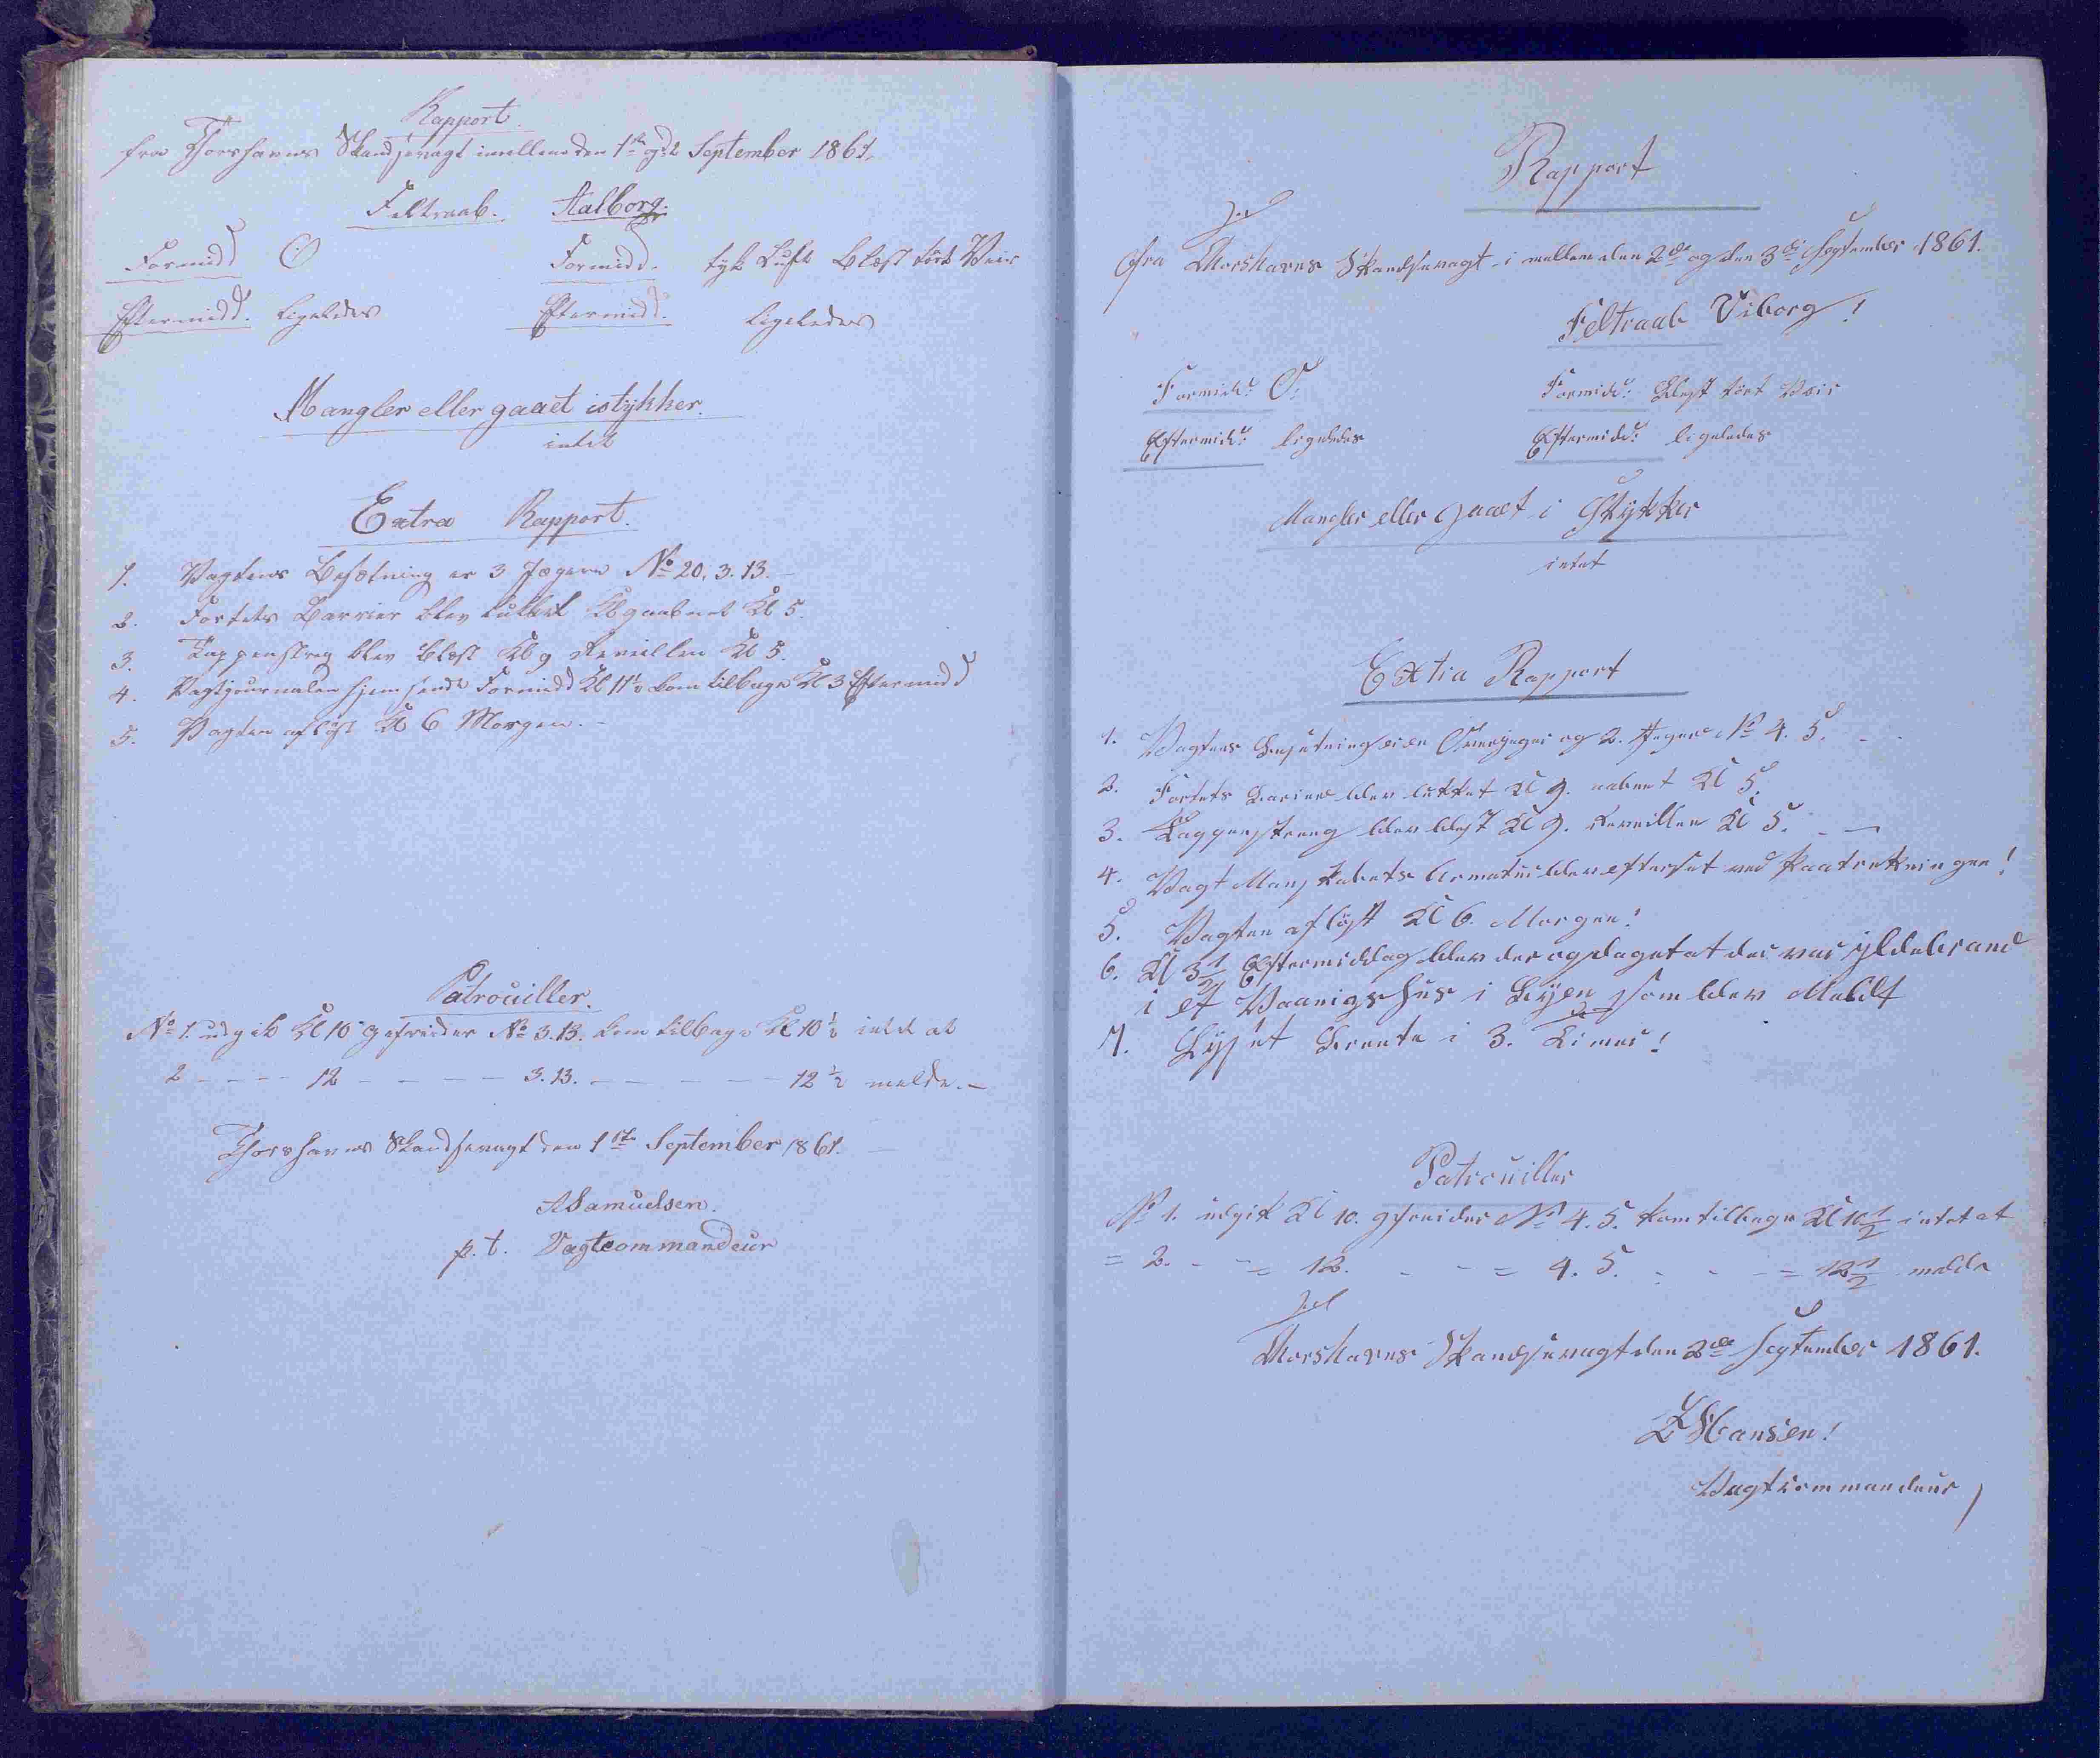 Rapport.
fra Thorshavns Skandsevagt imellem den 1ste og 2 September 1861.
Feltraab. Aalborg.
Formidd O Formidd. tyk Luft Blæst tört Veir
Eftermidd. ligeledes Eftermidd. ligeledes
Mangler eller gaaet istykker.
intet
Extra Rapport.
1. Vagtens Besætning er 3 Jægere No 20. 3. 13.
2. Fortets Barrier blev lukket Kl 9 aabnet Kl 5.
3. Tappenstreg blev blæst Kl 9 Reveillen Kl 5.
4. Vagtjournalen hjemsendt Formidd Kl 11½ kom tilbage Kl 3 Eftermidd
5. Vagten aflöst Kl 6 Morgen. -
Patrouiller.
No 1. udgik Kl 10 Gefreider No 3. 13. kom tilbage Kl 10½ intet at
2 - - - - 12 - - - - 3. 13. - - - - - 12½ melde. -
Thorshavns Skandsevagt den 1ste September 1861.
ASamuelsen.
p. t. Vagtcommandeur
Rapport
Fra Thorshavns Skandsevagt i mellem den 2de og den 3die September 1861.
Feltraab Viborg!
Formidd: O. Formidd: Blæst tört Væir
Eftermidd: ligeledes Eftermidd: ligeledes
Mangler eller gaaet i Stykker
intet
Extra Rapport
1. Vagtens Besætning er en Overjæger og 2. Jægere No 4. 5. -
2. Fortets Bariere blev lukket Kl 9. aabnet Kl 5.
3. Tappenstreeg blev blæst Kl 9. Reveillen Kl 5. - -
4. Vagt Manskabets Armatur blev efterset ved Paatrækningen!
5. Vagten aflöst Kl 6. Morgen!
6. Kl 3½ Eftermiddag blev der opdaget at der var Ildebrand
i et Vaanigshus i Byen som blev Meldt
7. Lyset Brente i 3. Timer!
Patrouiller
No 1. udgik Kl 10. gefreider No 4. 5. kom tilbage Kl 10½ intet at
= 2. - - = 12. - - = 4. 5. - - - = 12½ melde
Thorshavns Skandsevagt den 2de September 1861.
Hansen!
Vagtcommandeur